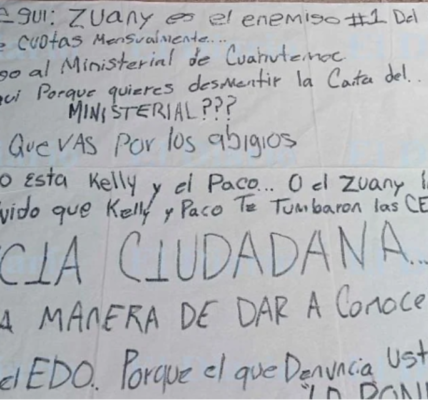 egui: Zuany es el enemigo #1 Del
e cuotas Mensualmente...
go al Ministerial de Cuahutemoc
qui Porque quieres desmentir la Carta del..
MINISTERIAL???
Que VAS Por los abigios
o Esta Kelly y el Paco... O el Zuany
vido que Kelly y Paco Te Tumbaron las CE
CIA CIUDADANA...
A MANERA DE DAR A Conoce
el EDO. Porque el que Denuncia Ust